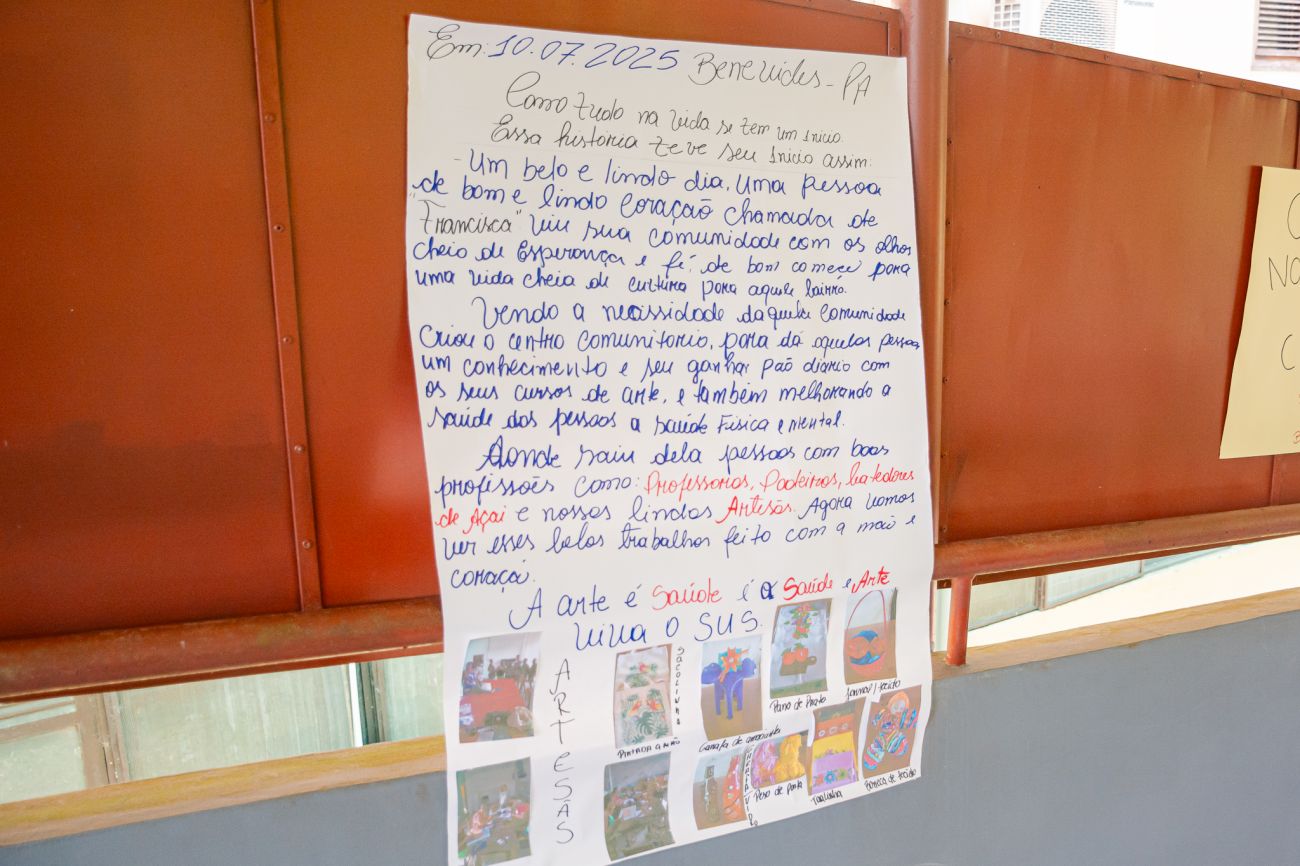 Em: 10.07.2025 Benevides-PA
Como tudo na vida se tem um inicio.
Essa história teve seu inicio assim:
- Um belo e lindo dia, uma pessoa
de bom e lindo coração chamada de
"Francisca" viu sua comunidade com os olhos
cheio de esperança e fé, de bom começo para
uma vida cheia de cultura para aquele bairro.
Vendo a necessidade daquela comunidade
criou o centro comunitorio, para dá aquelas pessoa
um conhecimento e seu ganhar paõ diario com
os seus cursos de arte, e também melhorando a
saúde das pessoas a saúde Fisica e mental.
Aonde saiu dela pessoas com boas
profissoẽs como: Professoras, Padeiros, batedores
de Açai e nossas lindas Artesãs. Agora vamos
ver esses belos trabalhos feito com a maõ e
coraçã.
A arte é Saúde é a Saúde e Arte
viva o SUS.
ARTESÃS
SACOLINHA
PINTADA A MÃO
Garrafa de
Pano de Prato
Jornal/tecido
Peso de porta
Toalinha
Boneca de tecido
NO
C